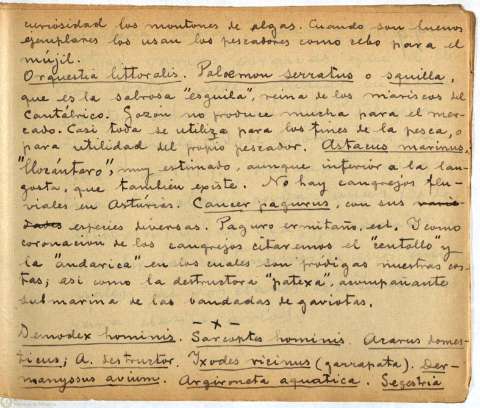 curiosidad los montones de algas. Cuando son buenos
ejemplares los usan los pescadores como cebo para el
mújil.
Orquestia littoralis. Palœmon serratus o squilla,
que es la sabrosa "esguila", reina de los mariscos del
Cantábrico. Gozón no produce mucha para el mer-
cado. Casi toda se utiliza para los fines de la pesca, o
para utilidad del própio pescador. Astacus marinus,
"llocántaro", muy estimado, aunque inferior a la lan-
gosta, que tambien existe. No hay cangrejos flu-
viales en Asturias. Cancer pagurus, con sus varie-
dades especies diversas. Paguro ermitaño, ect. Y como
coronación de los cangrejos citaremos el "centollo" y
la "andarica" en los cuales son pródigas nuestras cos-
tas; asi como la destructora "patexa", acompañante
submarina de las bandadas de gaviotas.
-x-
Demodex hominis. Sarcoptes hominis. Acarus domes-
ticus; A. destructor. Ixodes ricinus (garrapata). Der-
manyssus avium. Argironeta aquatica. Segestria